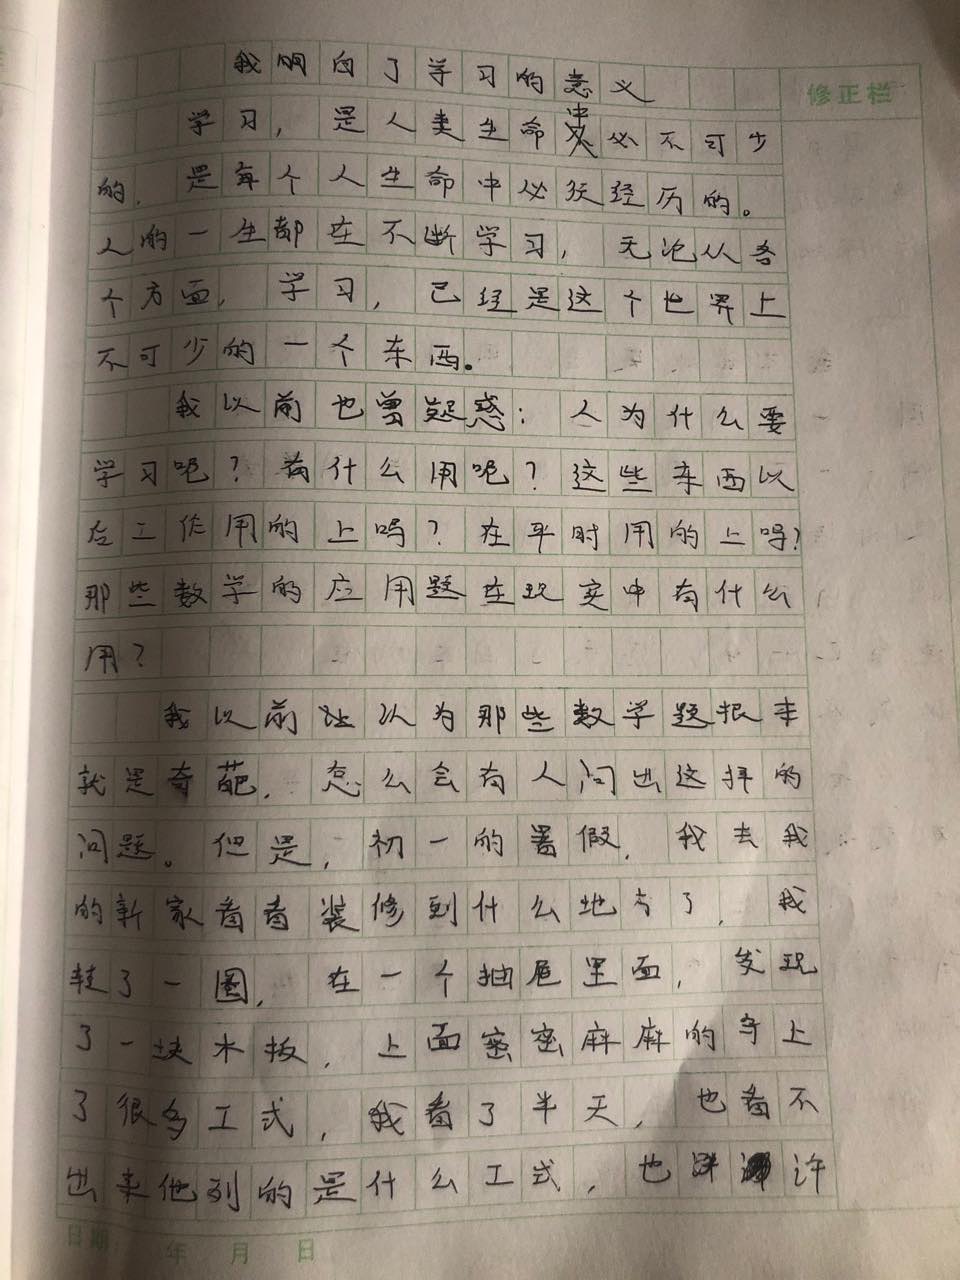 我明白了学习的意义
修正栏
学习，是人类生命中必不可少
的，是每个人生命中必须经历的。
人的一生都在不断学习，无论从各
个方面，学习，已经是这个世界上
不可少的一个东西。
我以前也曾疑惑：人为什么要
学习呢？有什么用呢？这些东西以
后工作用的上吗？在平时用的上吗？
那些数学的应用题在现实中有什么
用？
我以前还认为那些数学题根本
就是奇葩，怎么会有人问出这样的
问题。但是，初一的暑假，我去我
的新家看看装修到什么地方了，我
转了一圈，在一个抽屉里面，发现
了一块木板，上面密密麻麻的写上
了很多工式，我看了半天，也看不
出来他列的是什么工式，也许
日期 年 月 日